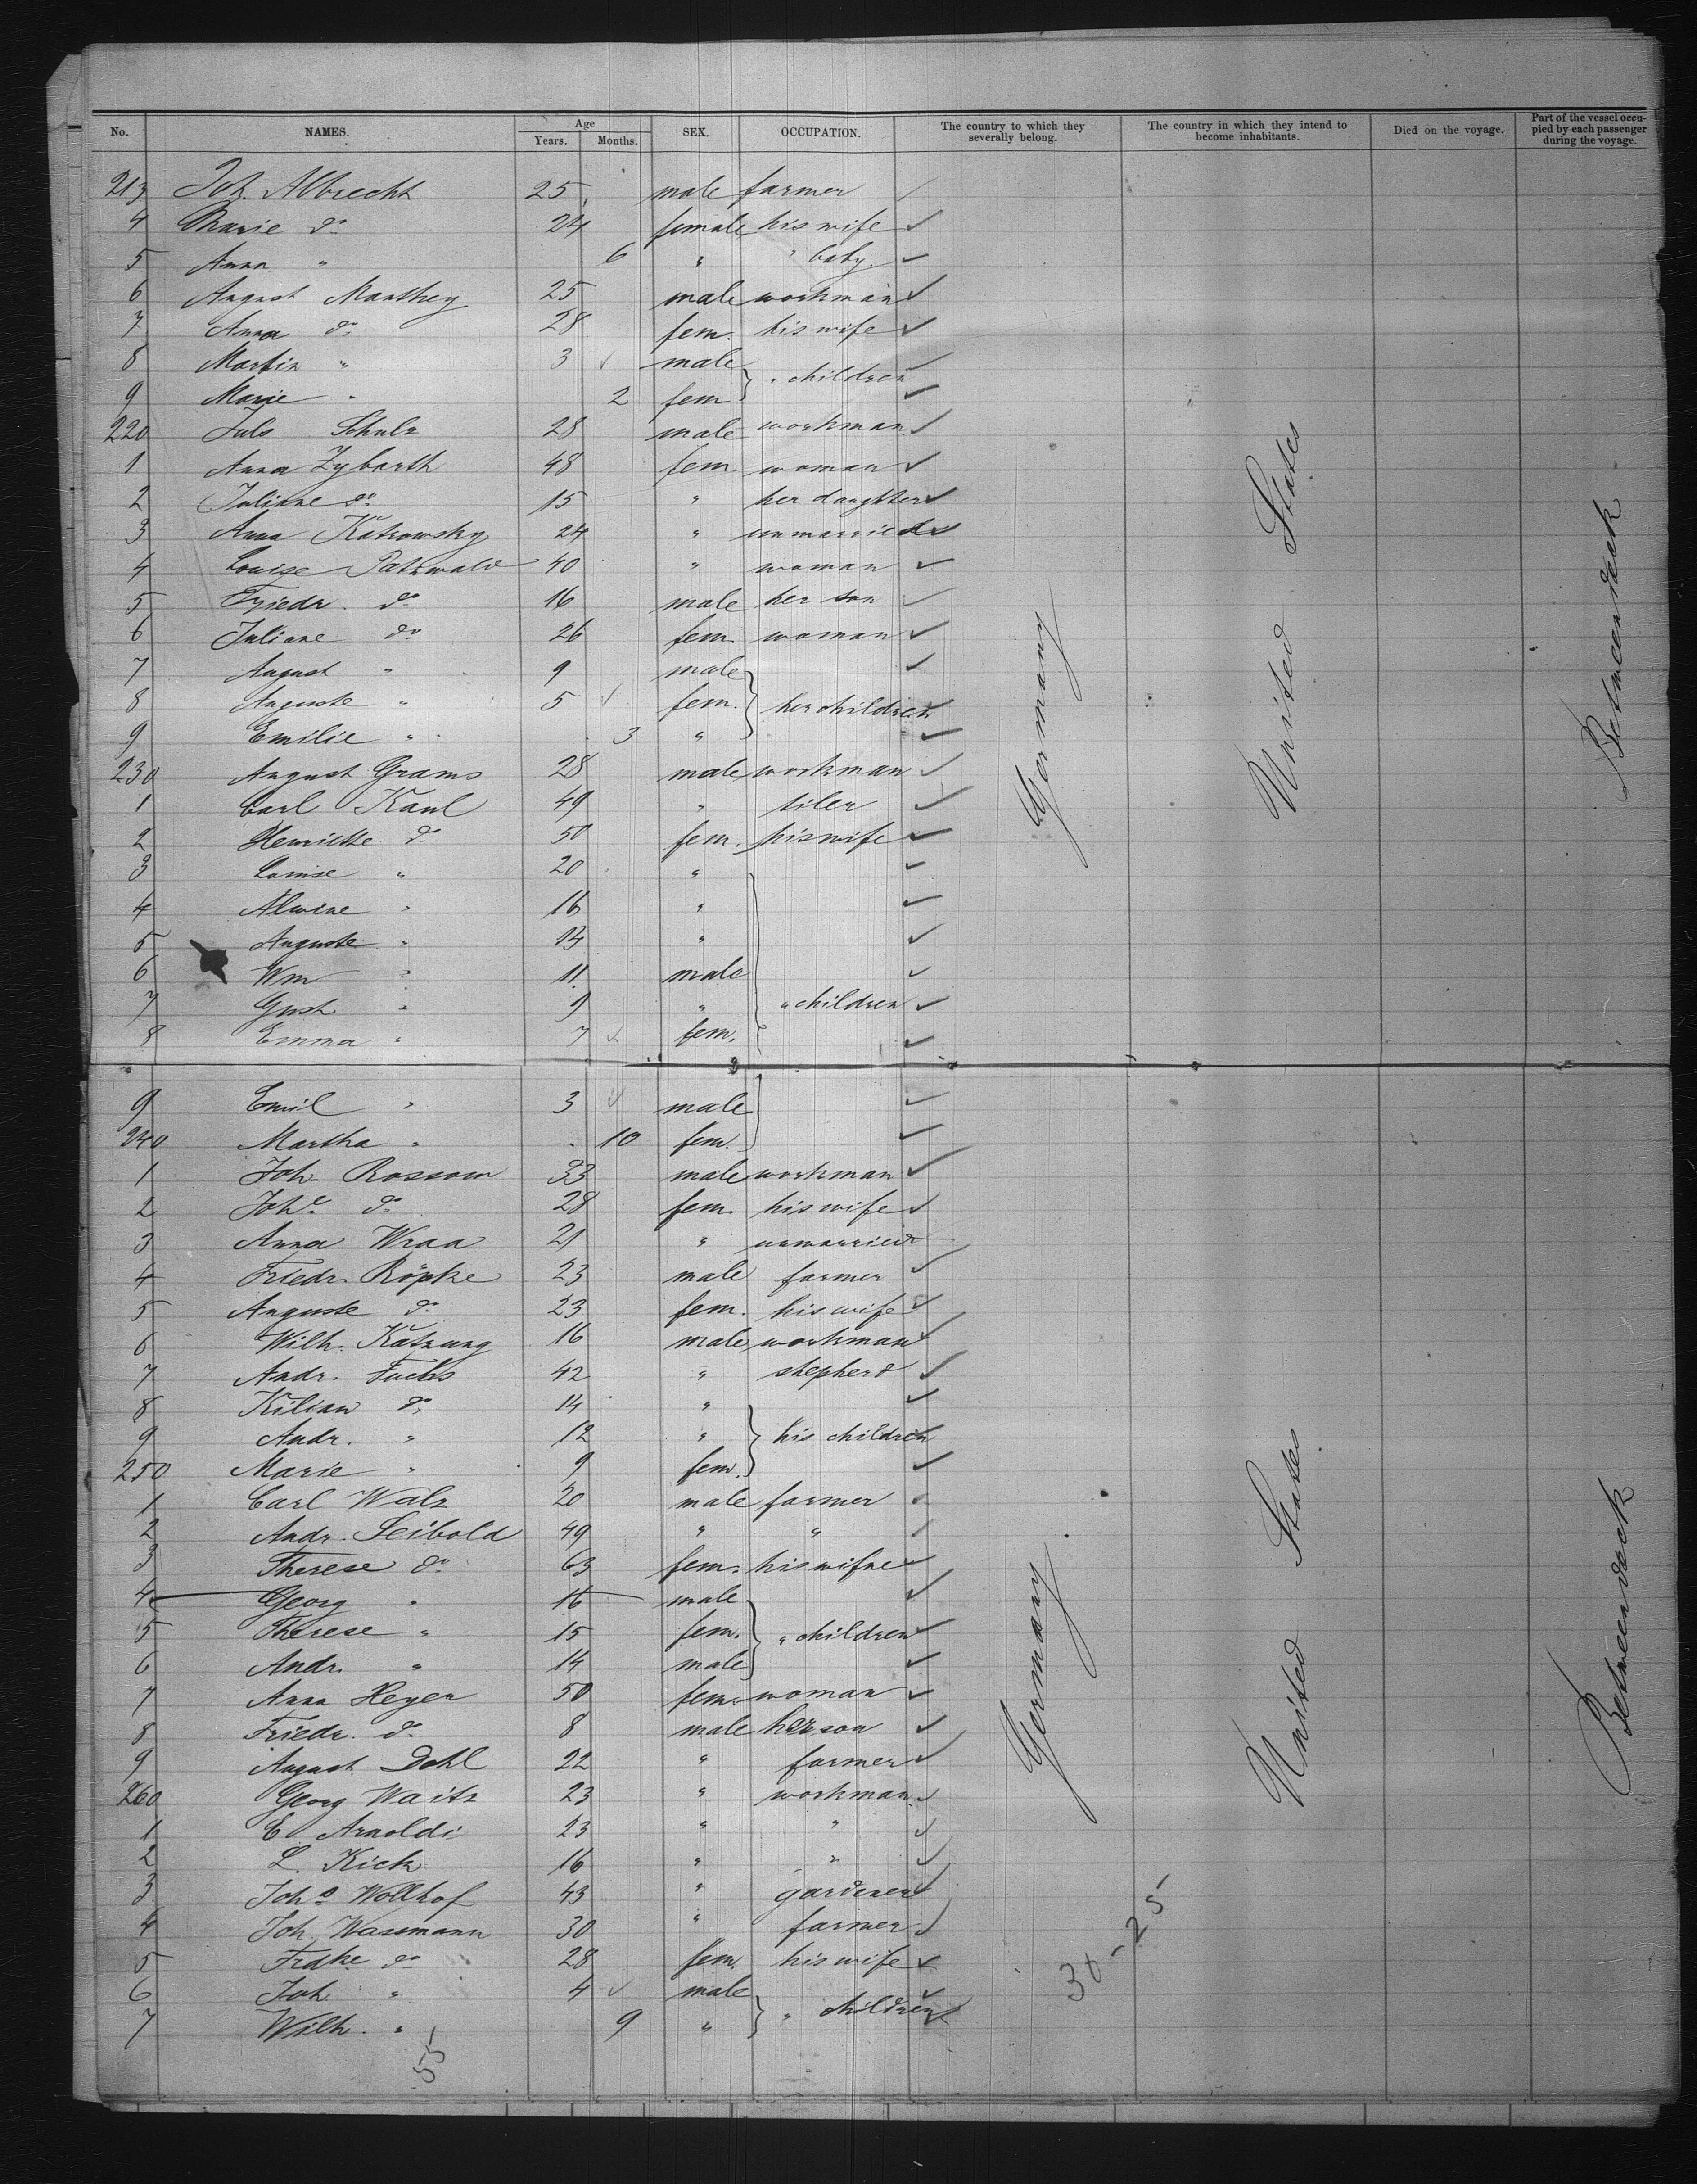 No. NAMES. Age Years. Months. SEX. OCCUPATION. The country to which they severally belong. The country in which they intend to become inhabitants. Died on the voyage. Part of the vessel occupied by each passenger during the voyage.
213 Joh. Albrecht 25 male farmer
4 Marie do 24 female his wife
5 Anna " 6 " " baby.
6 August Manthey 25 male workman
7 Anna do 28 fem. his wife
8 Martin " 3 male
" children
9 Marie " 2 fem
220 Juls Schulz 28 male workman
1 Anna Zybarth 48 fem. woman
2 Juliane do 15 " her daughter
3 Anna Katrowsky 24 " unmarried
4 Louise Patzwald 40 " woman
5 Friedr. do 16 male her son
6 Juliane do 26 fem. woman
7 August " 9 male
8 Auguste " 5 fem. her children
9 Emilie " 3 "
230 August Grams 28 male workman
1 Carl Kaul 49 " tiler
2 Henriette do 50 fem. his wife
3 Louise " 20 "
4 Alwine " 16 "
5 Auguste " 14 "
6 Wm " 11 male
7 Gust " 9 " " children
8 Emma " 7 fem.
Germany
United States
Betweendeck
9 Emil " 3 male
240 Martha " 10 fem.
1 Joh. Rossow 33 male workman
2 Johe do 28 fem. his wife
3 Anna Wraa 21 " unmarried
4 Friedr. Röpke 23 male farmer
5 Auguste do 23 fem. his wife
6 Wilh. Katzung 16 male workman
7 Andr. Fuchs 42 " shepherd
8 Kilian do 14 "
9 Andr. " 12 " his children
250 Marie " 9 fem.
1 Carl Walz 20 male farmer
2 Andr. Seibold 49 " "
3 Therese do 63 fem. his wife
4 Georg " 16 male
5 Therese " 15 fem. " children
6 Andr. " 14 male
7 Anna Heyer 50 fem. woman
8 Friedr. do 8 male her son
9 August Dohl 22 " farmer
260 Georg Waitz 23 " workman
1 E. Arnoldi 23 " "
2 L. Kick 16 " "
3 Johs Wollhof 43 " gardener
4 Joh. Wassmann 30 " farmer
5 Frdke do 28 fem. his wife
6 Joh " 4 male
" children
7 Wilh. " 9 "
Germany
United States
Betweendeck
30-25
55